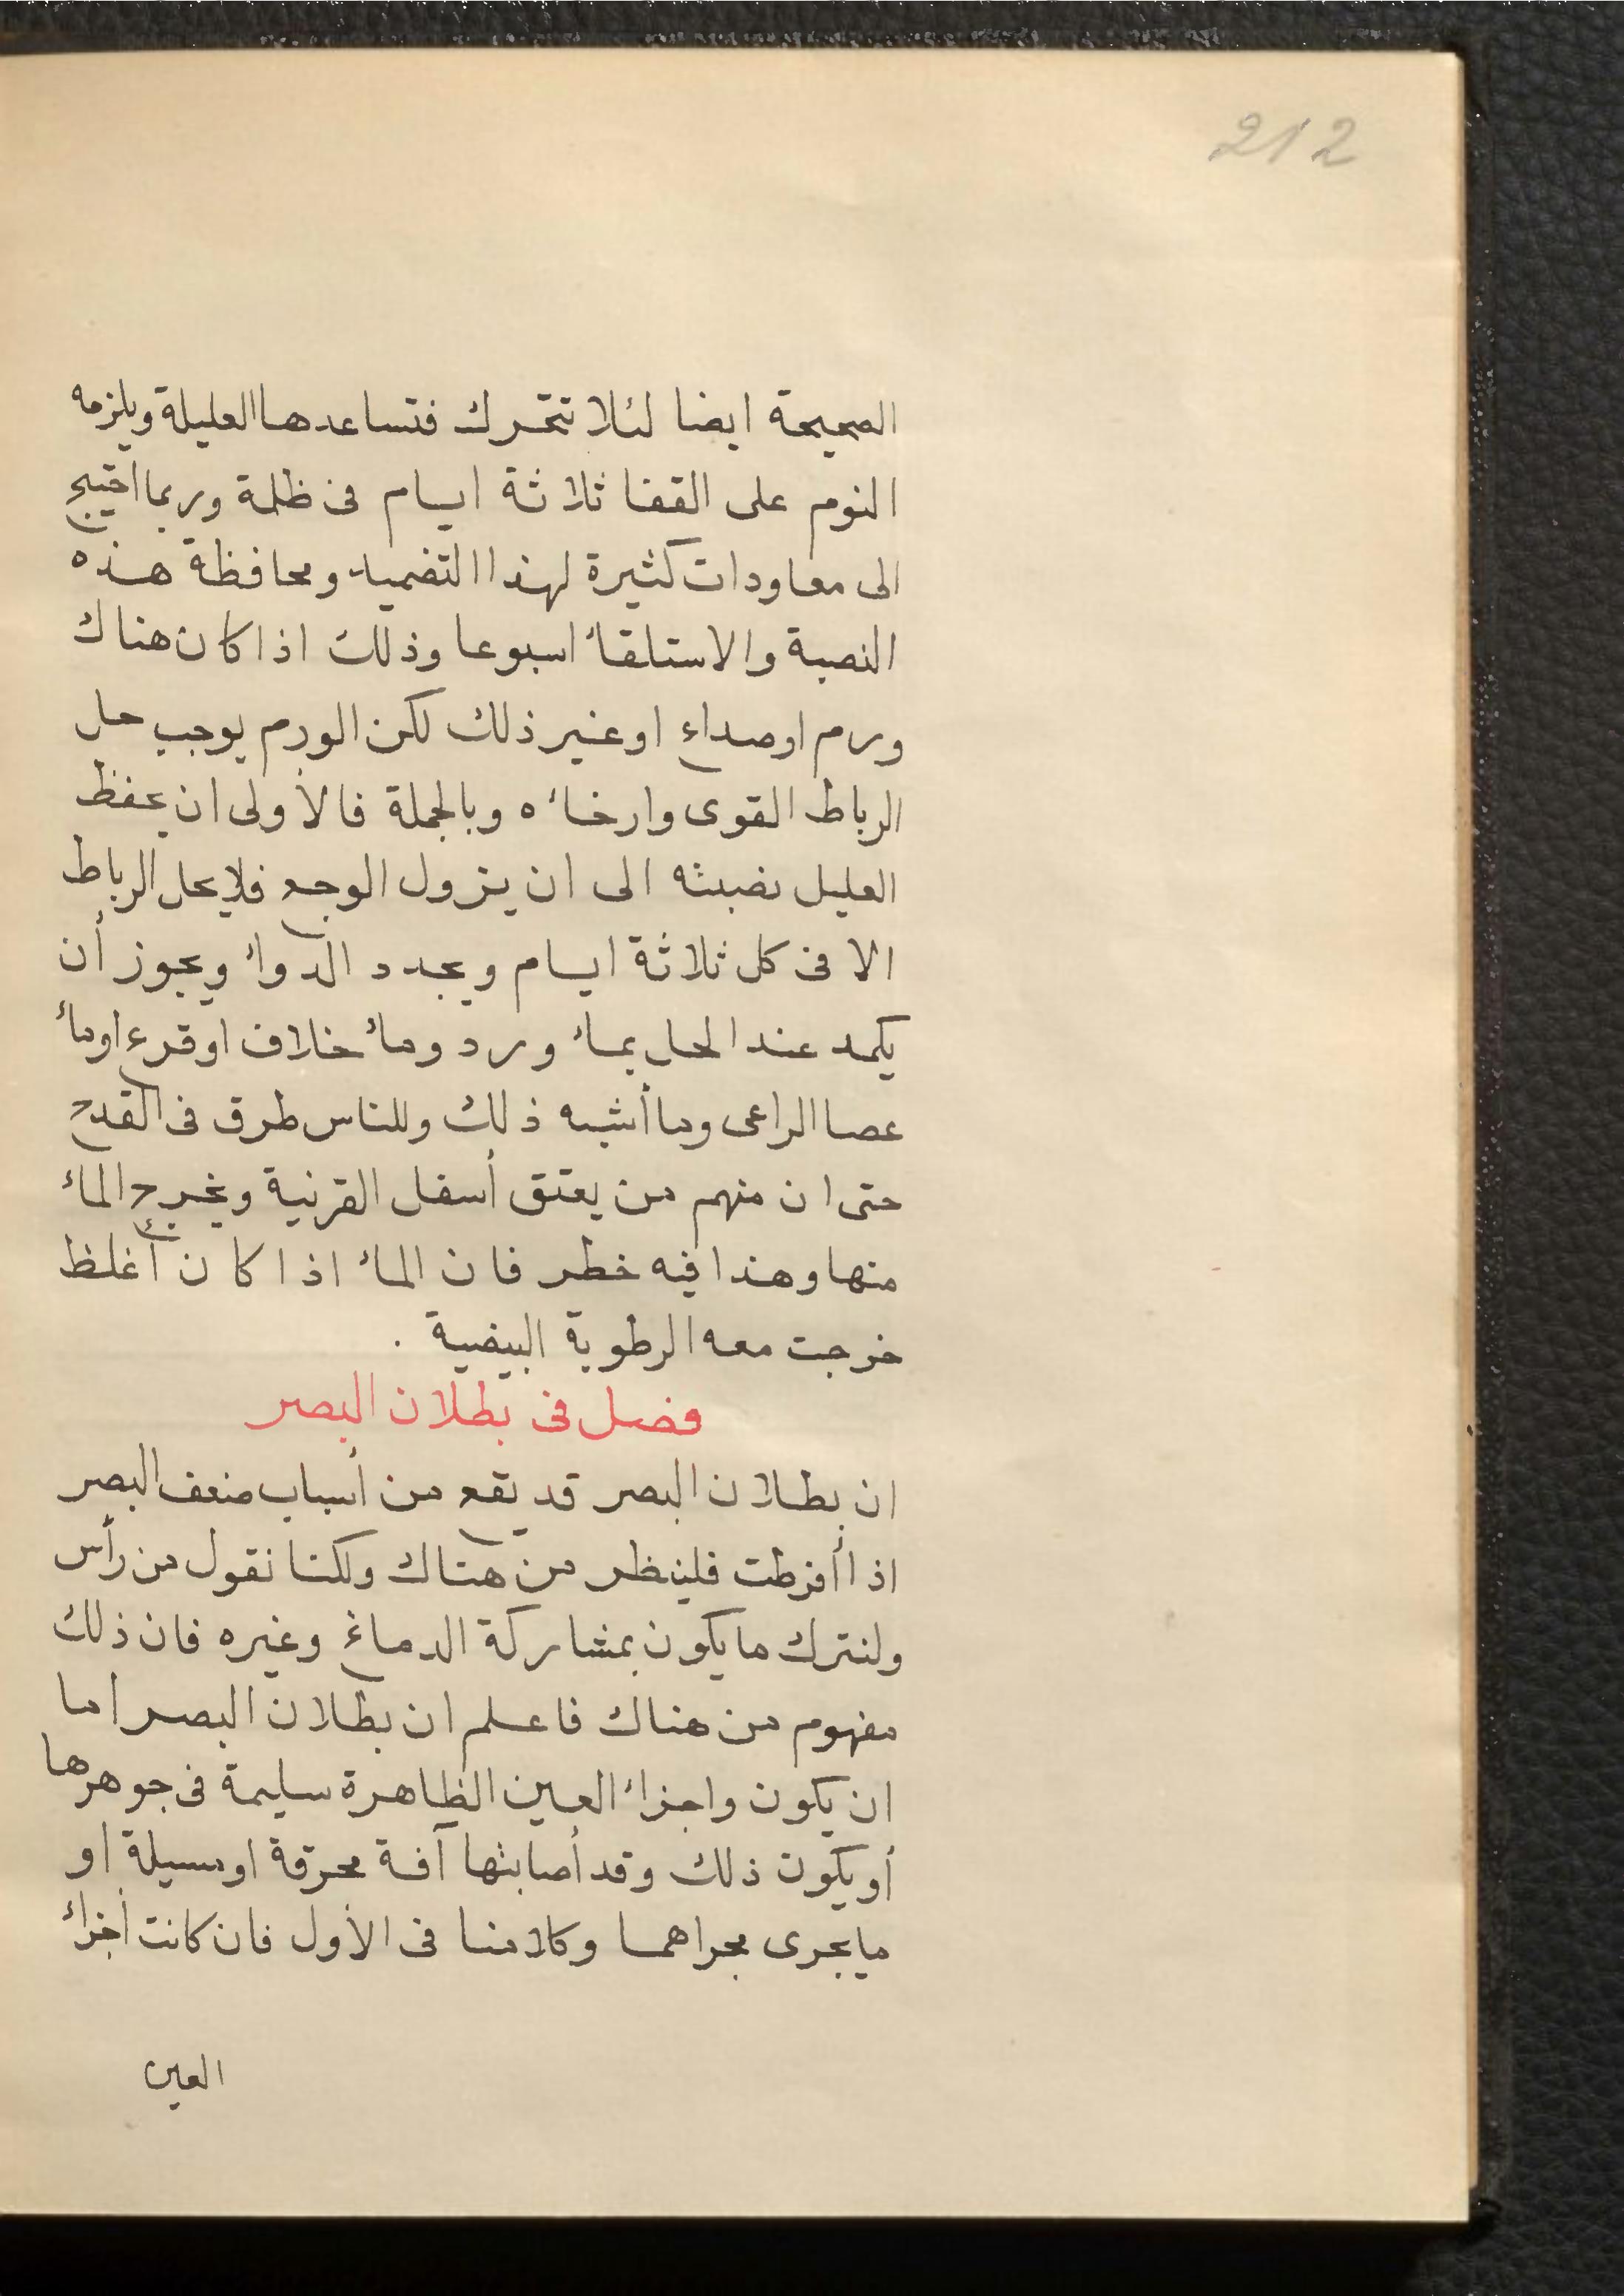 212
الصحيحة ايضا لئلا تتحرك فتساعدها العليلة ويلزمه
النوم على القفا ثلاثة ايام فى ظلمة وربما احتيج
الى معاودات كثيرة لهذا التضميد ومحافظة هذه
النصبة والاستلقاء اسبوعا وذلك اذا كان هناك
ورم اوصداع اوغير ذلك لكن الورم يوجب حل
الرباط القوى وارخائه وبالجملة فالأولى ان يحفظ
العليل نصبته الى ان يزول الوجع فلا يحل الرباط
الا فى كل ثلاثة ايام ويجدد الدواء ويجوز أن
يكمد عند الحل بماء ورد وماء خلاف اوقرع اوماء
عصا الراعى وما أشبه ذلك وللناس طرق فى القدح
حتى ان منهم من يفتق أسفل القرنية ويخرج الماء
منها وهذا فيه خطر فان الماء اذا كان أغلظ
خرجت معه الرطوبة البيضية .
فصل فى بطلان البصر
ان بطلان البصر قد يقع من أسباب ضعف البصر
اذا أفرطت فلينظر من هناك ولكنا نقول من رأس
ولنترك ما يكون بمشاركة الدماغ وغيره فان ذلك
مفهوم من هناك فاعلم ان بطلان البصر اما
ان يكون واجزاء العين الظاهرة سليمة فى جوهرها
أو يكون ذلك وقد أصابتها آفة محرقة اومسيلة او
ما يجرى مجراهما وكلامنا فى الأول فان كانت أجزاء
العين